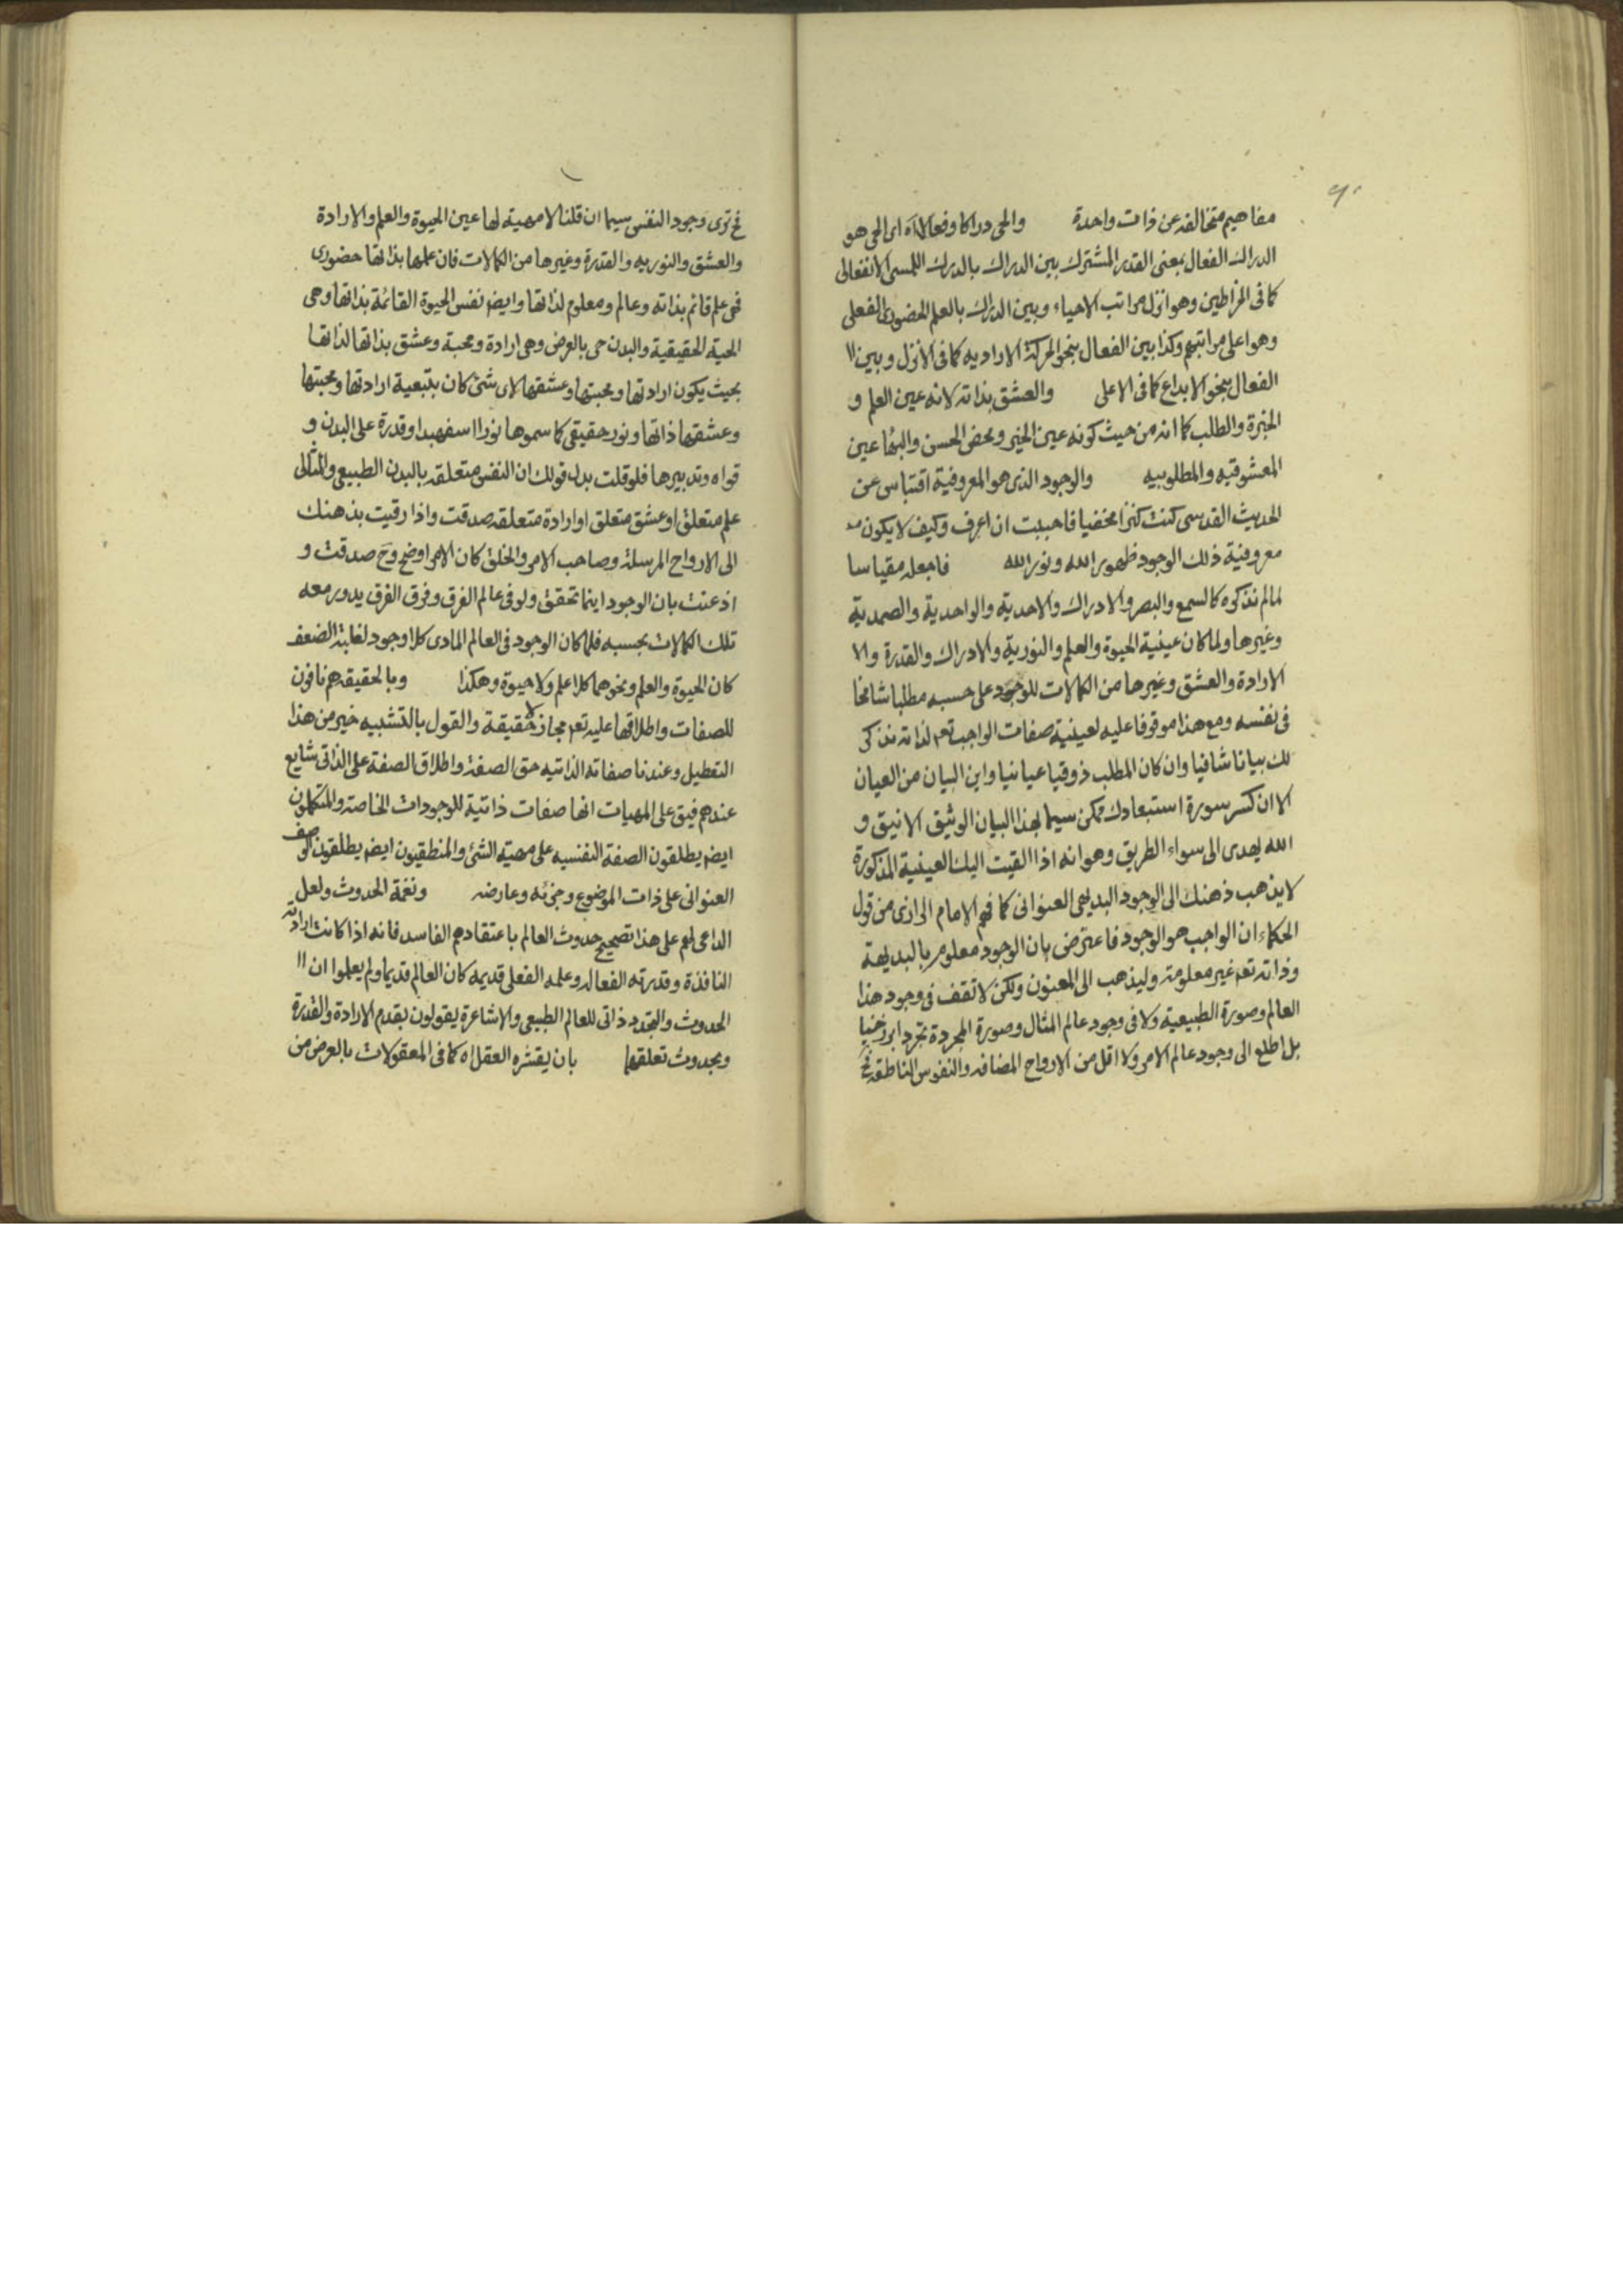 مفاهيم متخالفه عن ذات واحدة والحى دراكا وفعالا اه اى الحى هو
الدراك الفعال بمعنى القدر المشترك بين الدراك بالدرك اللمسى الانفعالى
كما فى الخراطين وهو انزل مراتب الاحياء وبين الدراك بالعلم الحضورى الفعلى
وهو اعلى مراتبهم وكذا بين الفعال بنحو الحركة الاراديه كما فى الانزل وبين ال
الفعال بنحو الابداع كما فى الاعلى والعشق بذاته لانه عين العلم و
الخبرة والطلب كما انه من حيث كونه عين الخير ومحض الحسن والبهاء عين
المعشوقيه والمطلوبيه والوجود الذى هو المعروفية اقتباس عن
الحديث القدسى كنت كنزا مخفيا فاحببت ان اعرف وكيف لا يكون
معروفية ذلك الوجود ظهور الله ونور الله فاجعله مقياسا
لما لم نذكره كالسمع والبصر والادراك والاحدية والواحدية والصمدية
وغيرها ولما كان عينية الحيوة والعلم والنورية والادراك والقدرة والا
الارادة والعشق وغيرها من الكمالات للوجود على حسبه مطلبا شامخا
فى نفسه ومع هذا موقوفا عليه لعينية صفات الواجب تعم لذاته نذكر
لك بيانا شافيا وان كان المطلب ذوقيا عيانيا واين البيان من العيان
الا ان كسر سورة استبعادك ممكن سيما بهذا البيان الوثيق الانيق و
الله يهدى الى سواء الطريق وهو انه اذا القيت اليك العينية المذكورة
لا يذهب ذهنك الى الوجود البديهى العنوانى كما فهم الامام الرازى من قول
الحكماء ان الواجب هو الوجود فاعترض بان الوجود معلوم بالبديهة
وذاته تعم غير معلومة وليذهب الى المعنون ولكن لا تقف فى وجود هذا
العالم وصورة الطبيعية ولا فى وجود عالم المثال وصورة المجردة تجردا برزخيا
بل اطلع الى وجود عالم الامر ولا اقل من الارواح المضافه والنفوس الناطقه فح
فح ترى وجود النفس سيما ان قلنا لا مهية لها عين الحيوة والعلم والارادة
والعشق والنوريه والقدرة وغيرها من الكمالات فان علمها بذاتها حضورى
فهى علم قائم بذاته وعالم ومعلوم لذاتها وايضا نفس الحيوة القائمة بذاتها وهى
الحية الحقيقية والبدن حى بالعرض وهى ارادة ومحبة وعشق بذاتها لذاتها
بحيث يكون ارادتها ومحبتها وعشقها لاى شئ كان بتبعية ارادتها ومحبتها
وعشقها ذاتها ونور حقيقى كما سموها نورا اسفهبدا وقدرة على البدن و
قواه وتدبيرها فلو قلت بدل قولك ان النفس متعلقه بالبدن الطبيعى والمثالى
علم متعلق او عشق متعلق او ارادة متعلقه صدقت واذا رقيت بذهنك
الى الارواح المرسلة وصاحب الامر والخلق كان الامر اوضح وح صدقت و
اذعنت بان الوجود اينما تحقق ولو فى عالم الفرق وفرق الفرق يدور معه
تلك الكمالات بحسبه فلما كان الوجود فى العالم المادى كلا وجود لغلبة الضعف
كان الحيوة والعلم ونحوهما كلا علم ولا حيوة وهكذا وبالحقيقه هم نافون
للصفات واطلاقها عليه تعم مجاز لا حقيقة والقول بالتشبيه خير من هذا
التعطيل وعندنا صفاته الذاتيه حق الصفة واطلاق الصفة على الذاتى شايع
عندهم فيق على المهيات انها صفات ذاتية للوجودات الخاصة والمتكلمون
ايضا يطلقون الصفة النفسيه على مهية الشئ والمنطقيون ايضا يطلقون الوصف
العنوانى على ذات الموضوع وجزئه وعارضه ونغمة الحدوث ولعل
الداعى لهم على هذا تصحيح حدوث العالم باعتقادهم الفاسد فانه اذا كانت ارادته
النافذة وقدرته الفعاله وعلمه الفعلى قديمه كان العالم قديما ولم يعلموا ان ال
الحدوث والتجدد ذاتى للعالم الطبيعى والاشاعرة يقولون بقدم الارادة والقدرة
وبحدوث تعلقهما بان يقشره العقل اه كما فى المعقولات بالعرض من